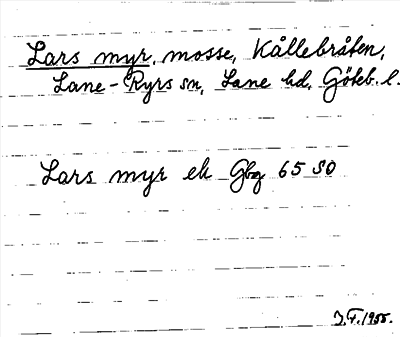 Lars myr, mosse, Kållebråten,
Lane-Ryrs sn, Lane hd, Göteb. l.
Lars myr ek Gbg 65 SO
J.F. 1955.